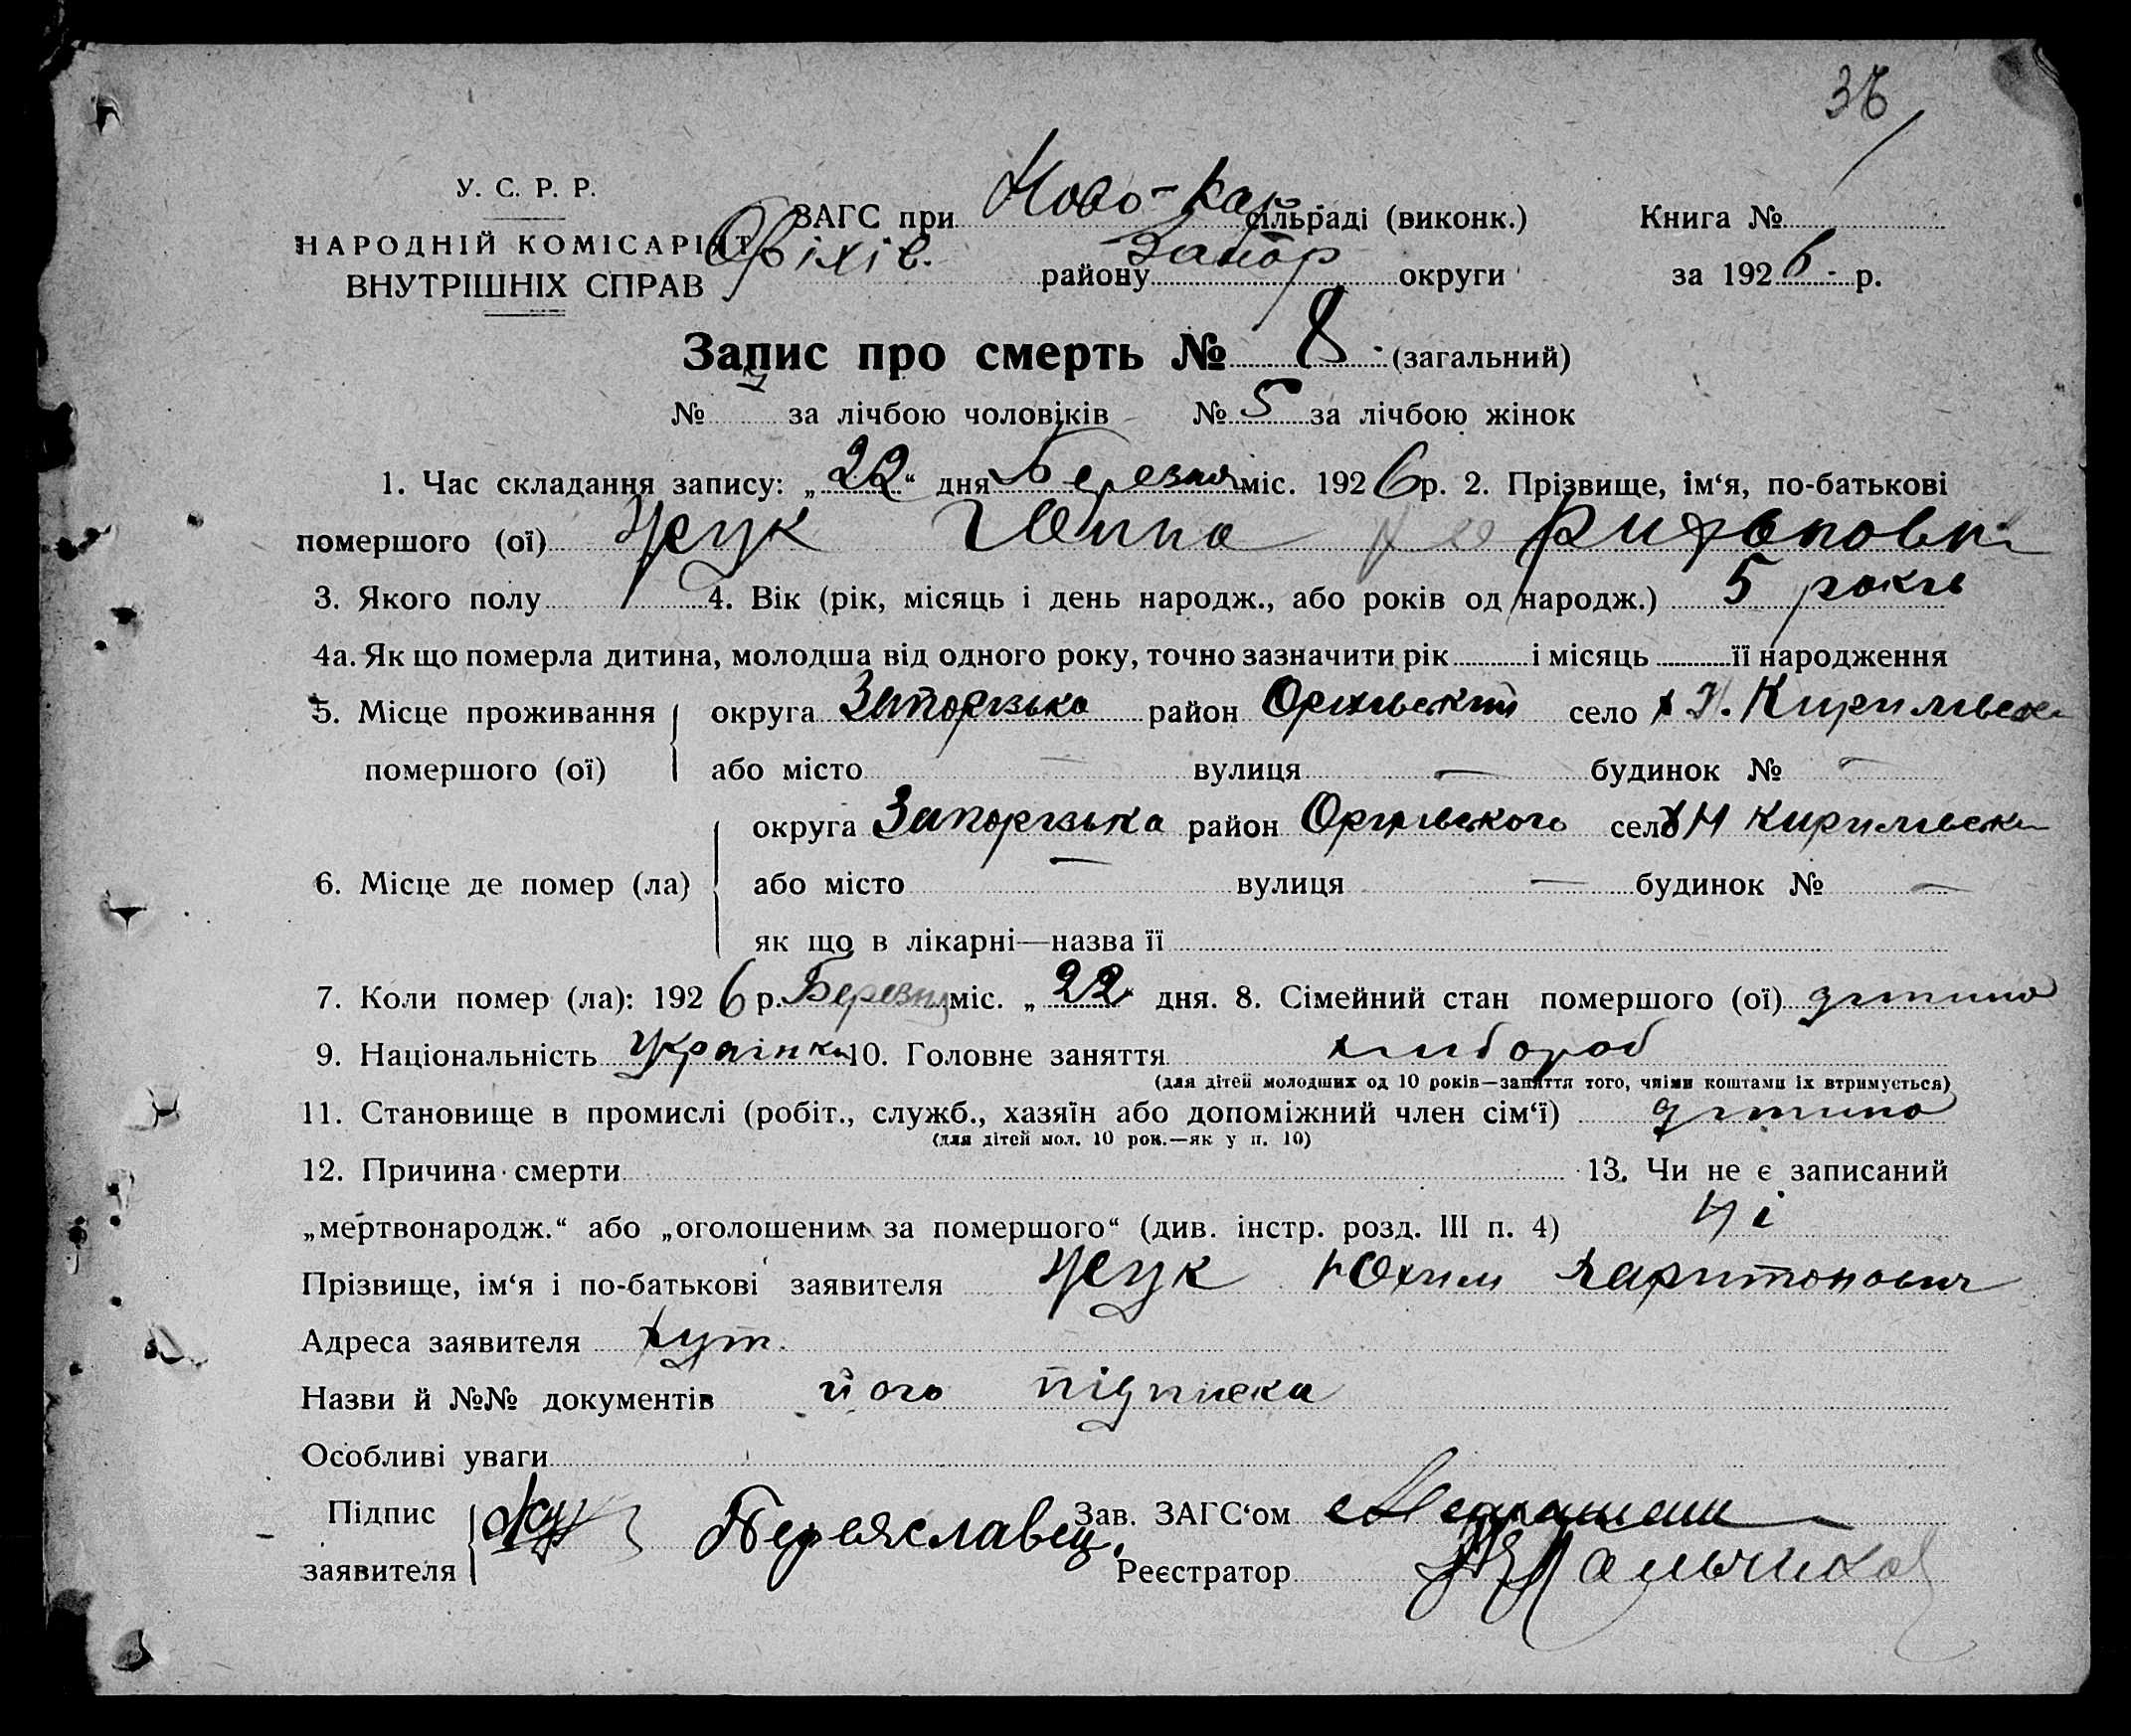 36
У. С. Р. Р.
НАРОДНІЙ КОМІСАРІЯТ
ВНУТРІШНІХ СПРАВ
ЗАГС при Ново-Кар сільраді (виконк.) Книга №
Оріхів. району Запор округи за 1926 р.
Запис про смерть № 8 (загальний)
№ за лічбою чоловіків № 5 за лічбою жінок
1. Час складання запису: „22“ дня Березня міс. 1926 р. 2. Прізвище, ім‘я, по-батькові
помершого (ої) Жук Ганна
3. Якого полу 4. Вік (рік, місяць і день народж., або років од народж.) 5 років
4а. Як що померла дитина, молодша від одного року, точно зазначити рік і місяць її народження
5. Місце проживання округа Запорізька район Оріхівський село х Н. Кирилівськ
помершого (ої) або місто — вулиця — будинок № —
округа Запорізька район Оріхівського село х Н Кирилівськ
6. Місце де помер (ла) або місто — вулиця — будинок № —
як що в лікарні—назва її
7. Коли помер (ла): 1926 р. Березня міс. „22 дня. 8. Сімейний стан помершого (ої) дитина
9. Національність Українка 10. Головне заняття хлібороб
(для дітей молодших од 10 років—заняття того, чиїми коштами їх втримується)
11. Становище в промислі (робіт., служб., хазяїн або допоміжний член сім‘ї) дитина
(для дітей мол. 10 рок.—як у п. 10)
12. Причина смерти 13. Чи не є записаний
„мертвонародж.“ або „оголошеним за помершого“ (див. інстр. розд. III п. 4) Ні
Прізвище, ім‘я і по-батькові заявителя Жук Юхим Харитонович
Адреса заявителя хут.
Назви й №№ документів його підписка
Особливі уваги
Підпис Зав. ЗАГС‘ом
заявителя Переяславец. Реєстратор